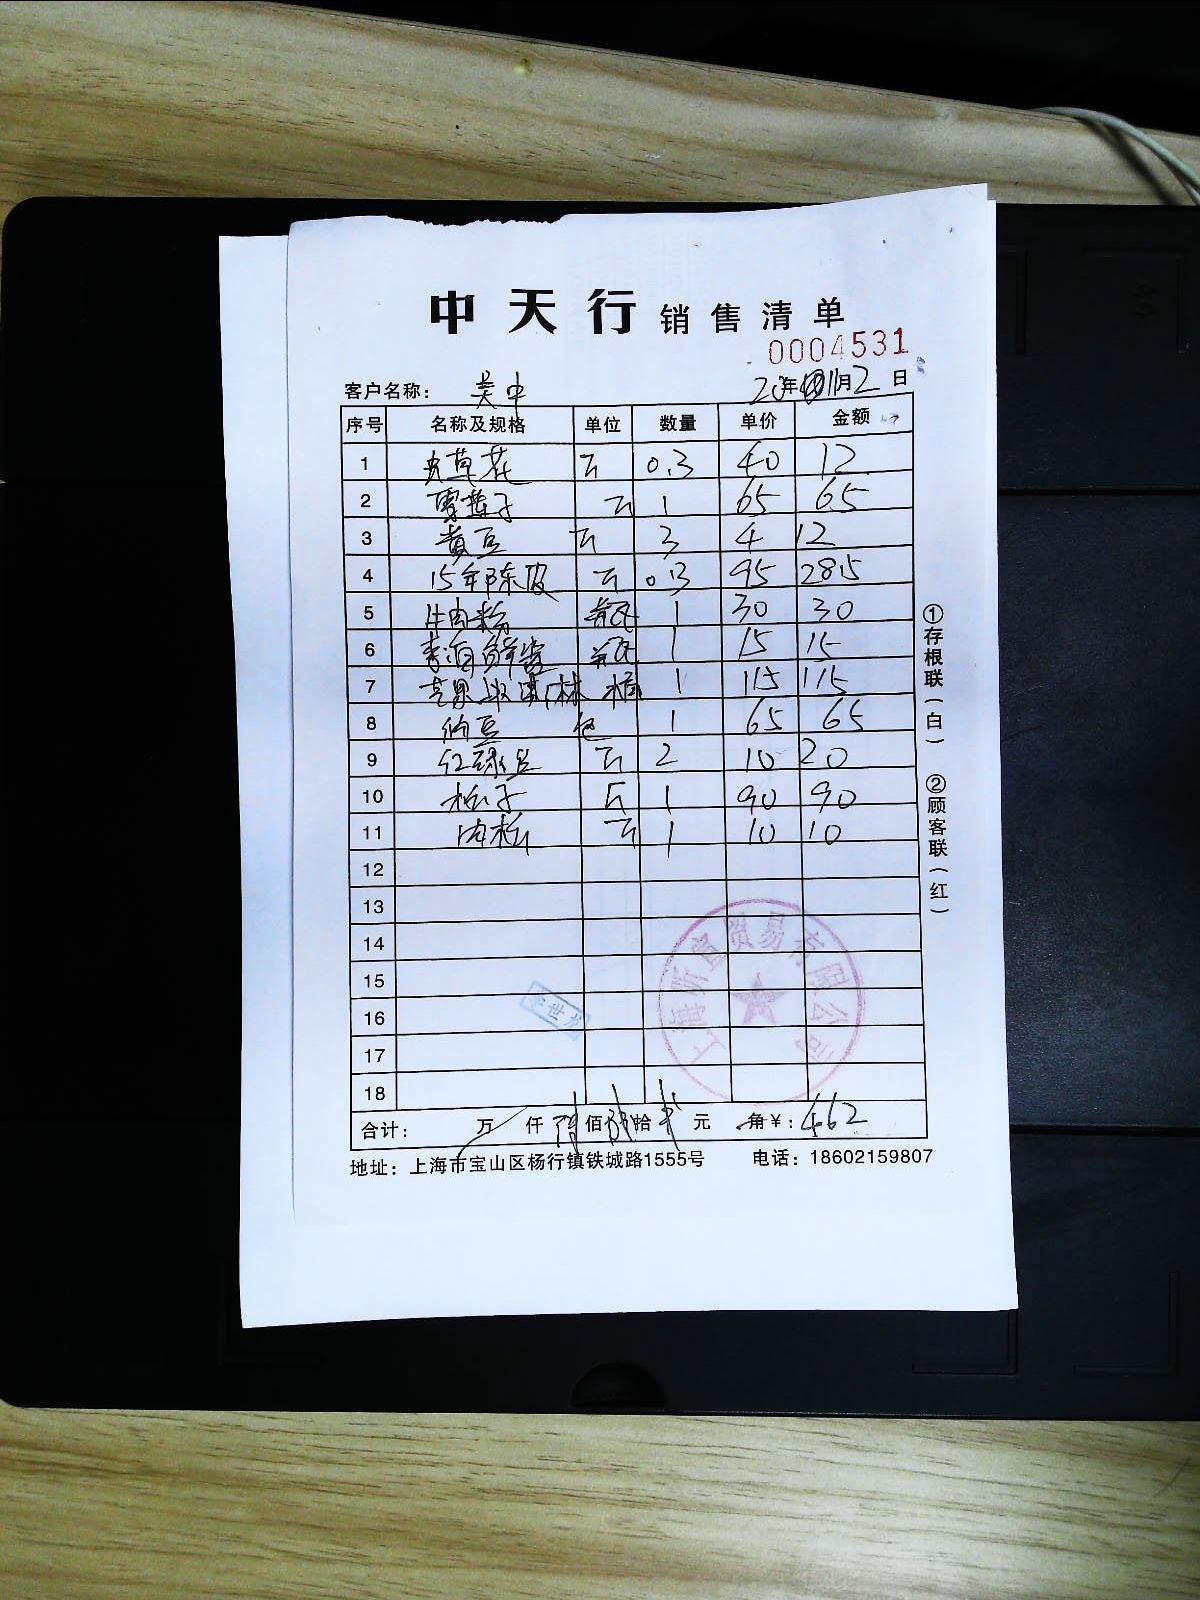 中天行 销售清单
0004531
客户名称： 吴中 20年11月2日
序号 名称及规格 单位 数量 单价 金额
1 虫草花 斤 0.3 40 12
2 雪莲子 斤 1 65 65
3 黄豆 斤 3 4 12
4 15年陈皮 斤 0.3 95 28.5
5 牛肉粉 瓶 1 30 30
6 青海鲜 瓶 1 15 15
7 芒果冰淇淋 桶 1 115 115
8 纳豆 包 1 65 65
9 红绿丝 斤 2 10 20
10 松子 斤 1 90 90
11 肉松 斤 1 10 10
12
13
14
15
16
17
18
合计： 万 仟 肆佰陆拾贰元 角￥：462
地址：上海市宝山区杨行镇铁城路1555号 电话：18602159807
①存根联（白） ②顾客联（红）
上海 贸易有限公司